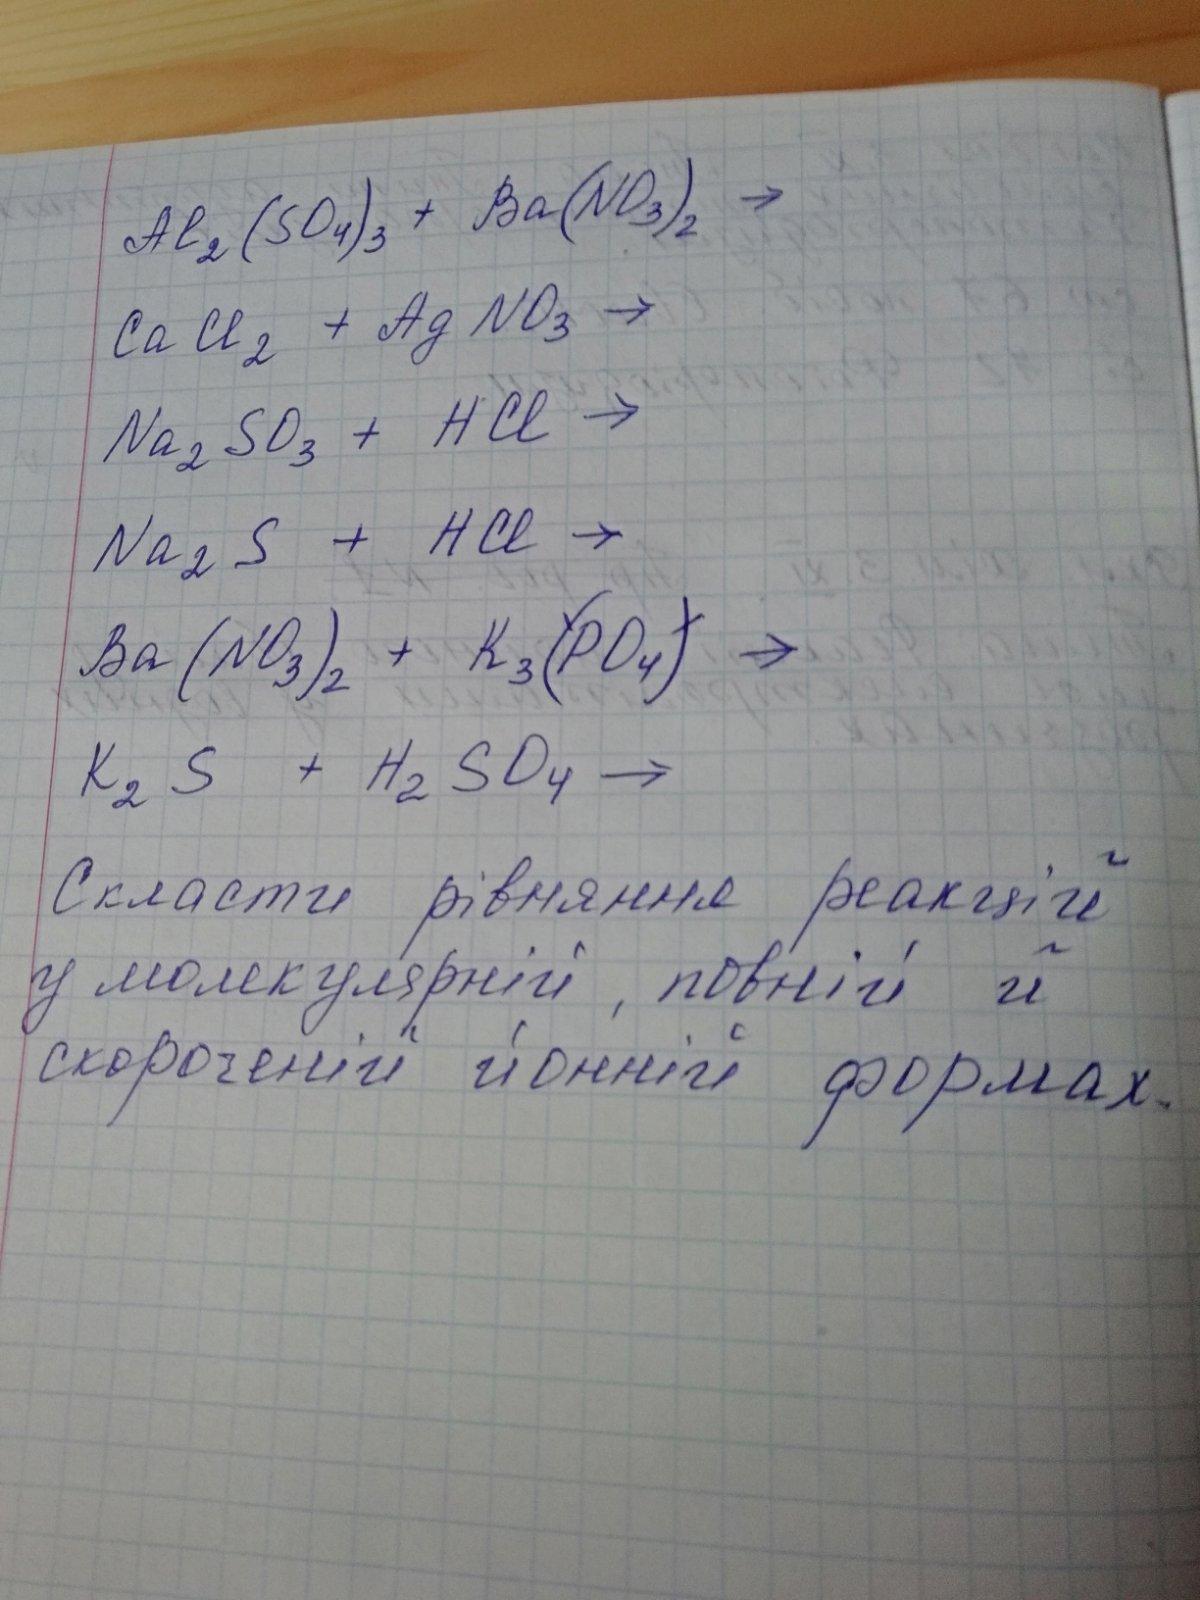 Al₂(SO₄)₃ + Ba(NO₃)₂ →
CaCl₂ + AgNO₃ →
Na₂SO₃ + HCl →
Na₂S + HCl →
Ba(NO₃)₂ + K₃(PO₄) →
K₂S + H₂SO₄ →
Скласти рівняння реакцій
у молекулярній, повній й
скороченій йонній формах.